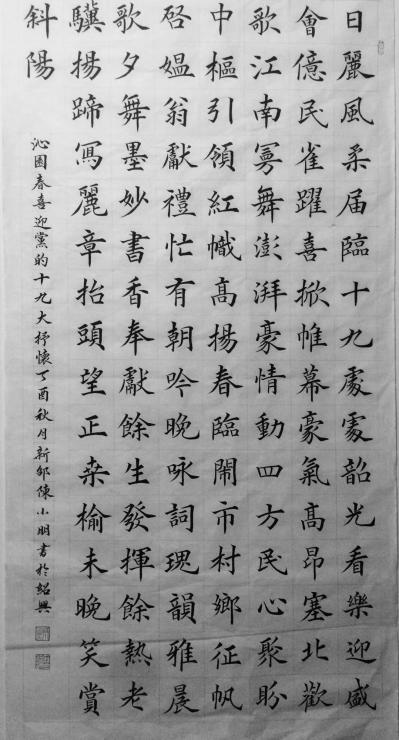 日麗風柔届臨十九處處韶光看樂迎盛
會億民雀躍喜掀帷幕豪氣高昂塞北歡
歌江南舞澎湃豪情動四方民心聚盼
中樞引領紅幟高揚春臨鬧市村鄉征帆
啓媼翁獻禮忙有朝吟晚咏詞瑰韻雅晨
歌夕舞墨妙書香奉獻餘生發揮餘熱老
驥揚蹄寫麗章抬頭望正桑榆未晚笑賞
斜陽
沁園春喜迎黨的十九大抒懷丁酉秋月新邨陳小明書於紹興